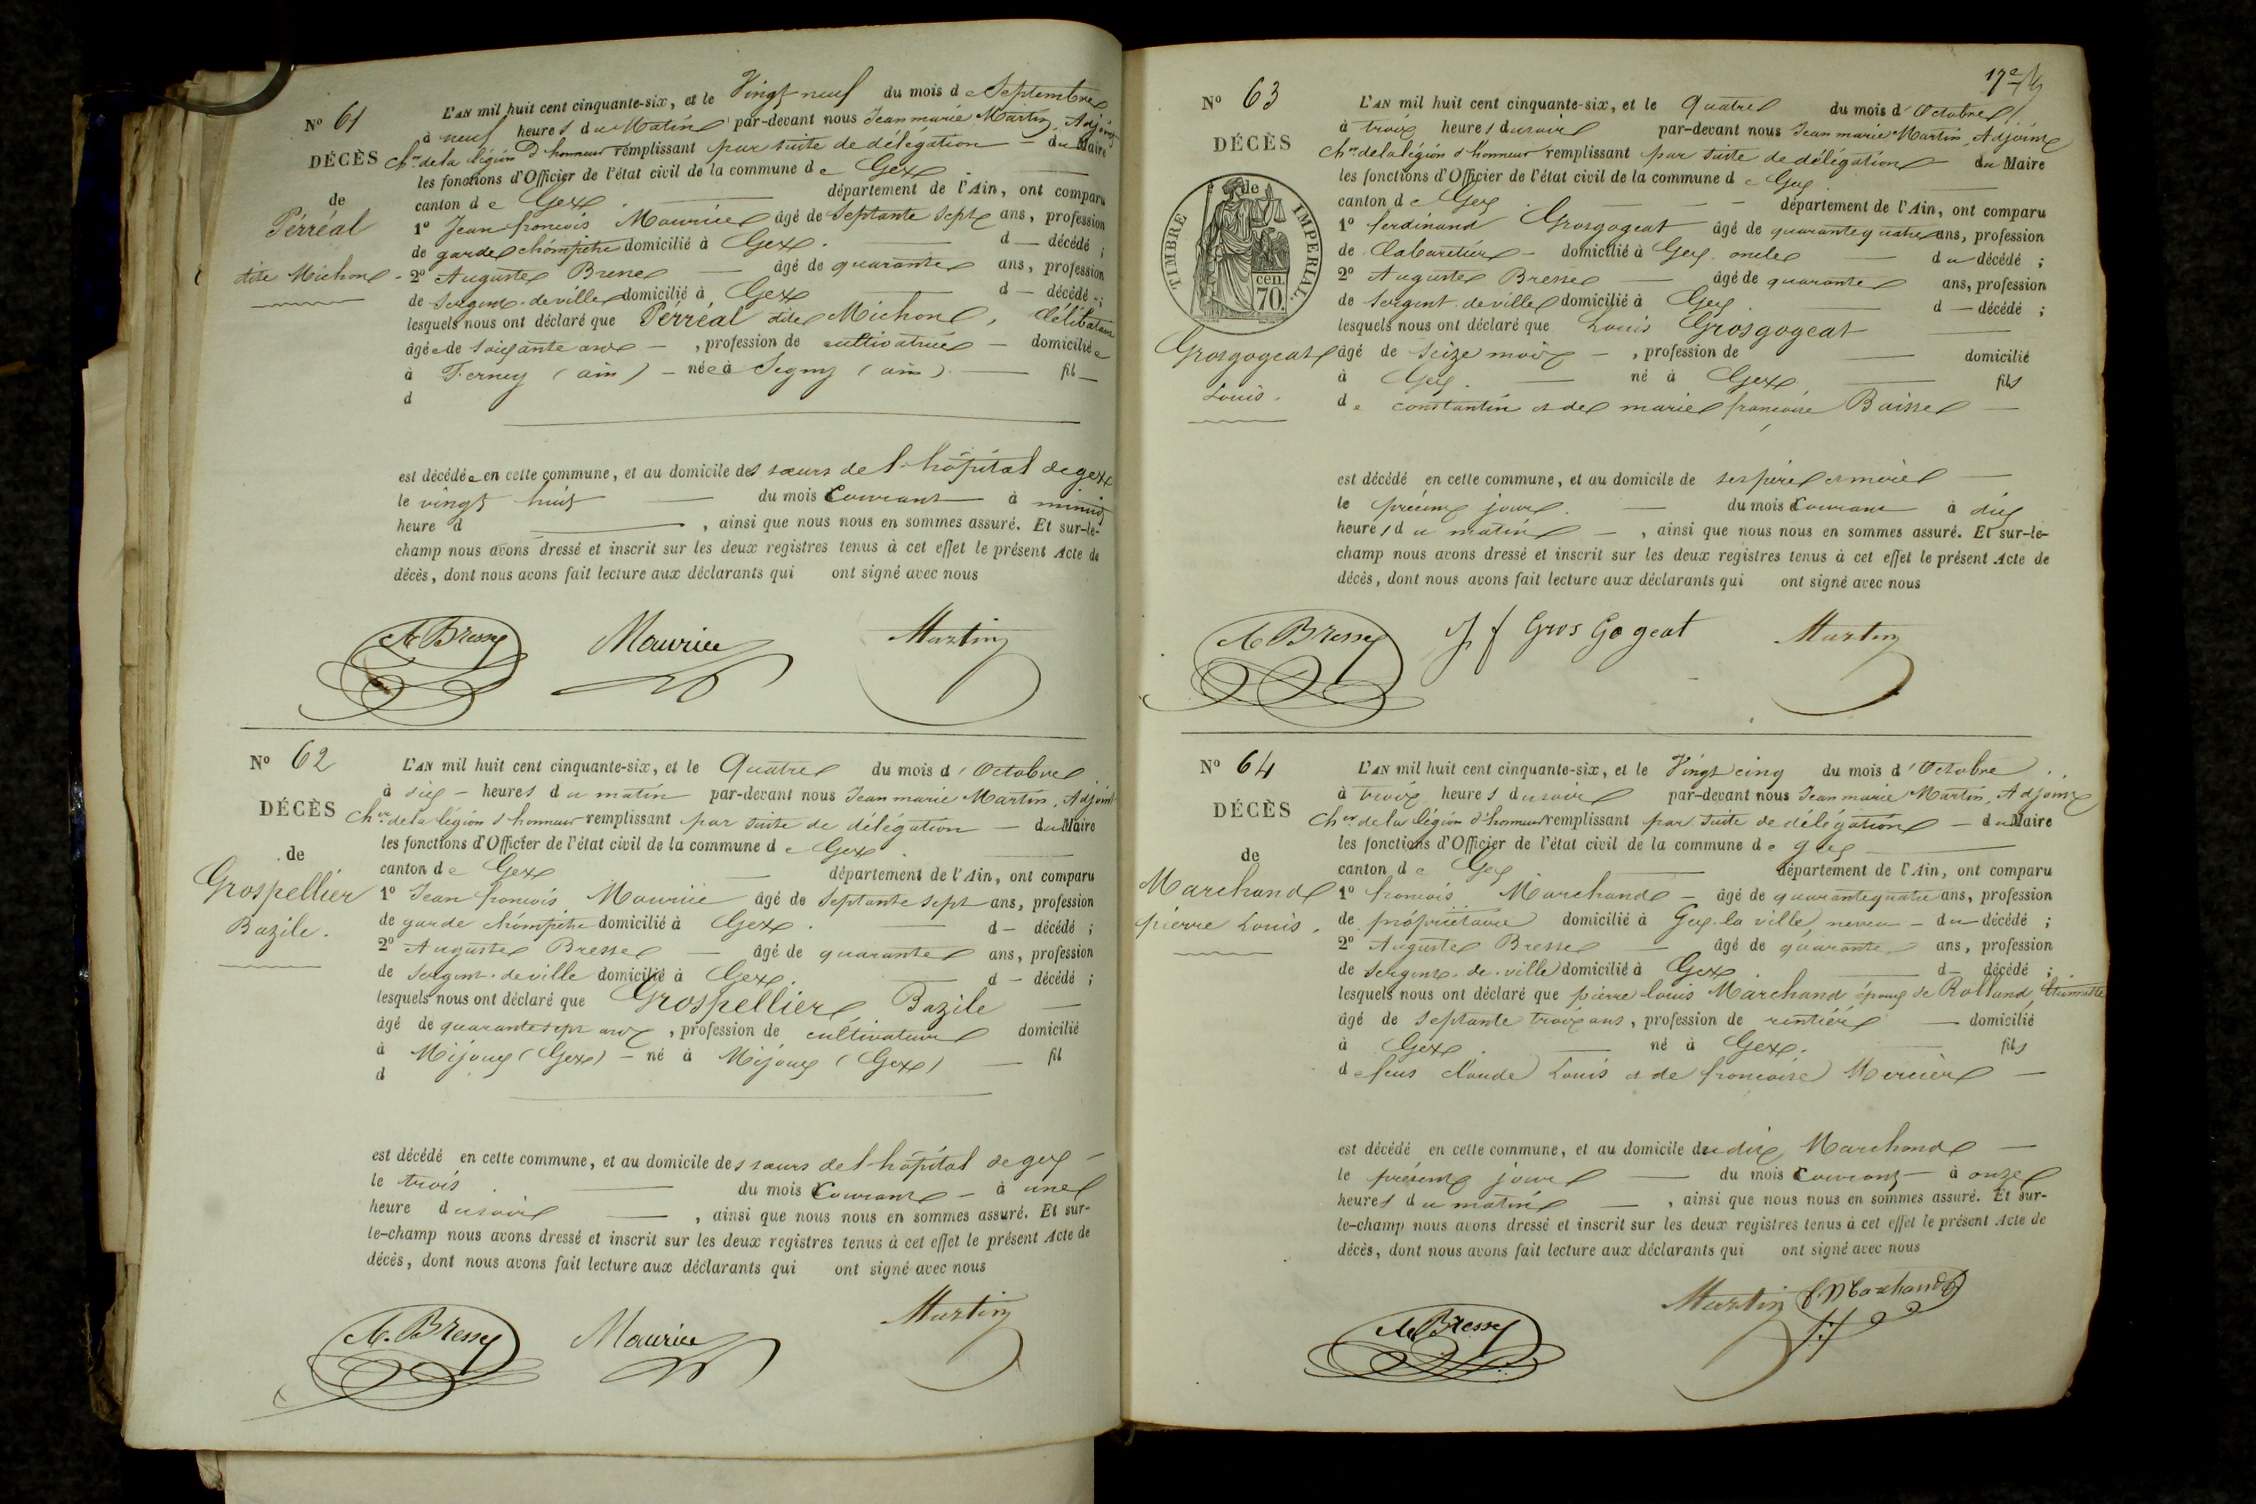 N° 61
DÉCÈS
de
Pérréal
dite Michon
L'AN mil huit cent cinquante-six, et le Vingt neuf du mois de Septembre
à neuf heures du Matin par-devant nous Jean marie Martin, Adjoint
Cher de la légion d'honneur remplissant par suite de délégation du Maire
les fonctions d'Officier de l'état civil de la commune de Gex
canton de Gex département de l'Ain, ont comparu
1° Jean francois Maurice âgé de Septante Sept ans, profession
de garde chámpêtre domicilié à Gex. d décédé ;
2° Auguste Bresse âgé de quarante ans, profession
de sergent de ville domicilié à Gex d décédé ;
lesquels nous ont déclaré que Pérréal dite Michon, Célibataire
âgée de soixante ans, profession de cultivatrice domiciliée
à Ferney (ain) née à Segny (ain) fil
d
est décédée en cette commune, et au domicile des sœurs de l'hôpital de gex
le vingt huit du mois Courant à minuit
heure d , ainsi que nous nous en sommes assuré. Et sur-le-
champ nous avons dressé et inscrit sur les deux registres tenus à cet effet le présent Acte de
décès, dont nous avons fait lecture aux déclarants qui ont signé avec nous
A Bresse Maurice Martin
N° 62
DÉCÈS
de
Grospellier
Bazile.
L'AN mil huit cent cinquante-six, et le Quatre du mois d'Octobre
à dix heures du matin par-devant nous Jean marie Martin, Adjoint
Cher de la légion d'honneur remplissant par suite de délégation du Maire
les fonctions d'Officier de l'état civil de la commune de Gex
canton de Gex département de l'Ain, ont comparu
1° Jean francois Maurice âgé de Septante sept ans, profession
de garde chámpêtre domicilié à Gex. d décédé ;
2° Auguste Bresse âgé de quarante ans, profession
de sergent de ville domicilié à Gex. d décédé ;
lesquels nous ont déclaré que Grospellier, Bazile
âgé de quarante sept ans, profession de cultivateur domicilié
à Mijoux (Gex) né à Mijoux (Gex) fil
d
est décédé en cette commune, et au domicile des sœurs de l'hôpital de gex
le trois du mois Courant à une
heure du soir , ainsi que nous nous en sommes assuré. Et sur-
le-champ nous avons dressé et inscrit sur les deux registres tenus à cet effet le présent Acte de
décès, dont nous avons fait lecture aux déclarants qui ont signé avec nous
A. Bresse Maurice Martin
N° 63
DÉCÈS
de
TIMBRE IMPÉRIAL.
70 cen.
Grosgogeat
Louis.
L'AN mil huit cent cinquante-six, et le Quatre du mois d'Octobre
à trois heures du soir par-devant nous Jean marie Martin, Adjoint
Cher de la légion d'honneur remplissant par suite de délégation du Maire
les fonctions d'Officier de l'état civil de la commune de Gex.
canton de Gex département de l'Ain, ont comparu
1° ferdinand Grosgogeat âgé de quarante quatre ans, profession
de Cabaretier domicilié à Gex. oncle du décédé ;
2° Auguste Bresse âgé de quarante ans, profession
de sergent de ville domicilié à Gex d décédé ;
lesquels nous ont déclaré que Louis Grosgogeat
âgé de seize mois, profession de domicilié
à Gex. né à Gex fils
de constantin et de marie francoise Baisse
est décédé en cette commune, et au domicile de ses père et mère
le présent jour. du mois Courant à dix
heures du matin , ainsi que nous nous en sommes assuré. Et sur-le-
champ nous avons dressé et inscrit sur les deux registres tenus à cet effet le présent Acte de
décès, dont nous avons fait lecture aux déclarants qui ont signé avec nous
A Bresse J f Gros Gogeat Martin
N° 64
DÉCÈS
de
Marchand
pierre Louis.
L'AN mil huit cent cinquante-six, et le Vingt cinq du mois d'Octobre
à trois heures du soir par-devant nous Jean marie Martin, Adjoint
Cher de la légion d'honneur remplissant par suite de délégation du Maire
les fonctions d'Officier de l'état civil de la commune de gex
canton de Gex département de l'Ain, ont comparu
1° francois Marchand âgé de quarante quatre ans, profession
de própriétaire domicilié à Gex-la ville, neveu du décédé ;
2° Auguste Bresse âgé de quarante ans, profession
de sergent de ville domicilié à Gex d décédé ;
lesquels nous ont déclaré que pierre Louis Marchand époux de Rolland,
âgé de septante trois ans, profession de rentier domicilié
à Gex. né à Gex. fils
de feus claude Louis et de francoise Mercier
est décédé en cette commune, et au domicile du dit Marchand
le présent jour du mois Courant à onze
heures du matin , ainsi que nous nous en sommes assuré. Et sur-
le-champ nous avons dressé et inscrit sur les deux registres tenus à cet effet le présent Acte de
décès, dont nous avons fait lecture aux déclarants qui ont signé avec nous
A Bresse Martin f Marchand